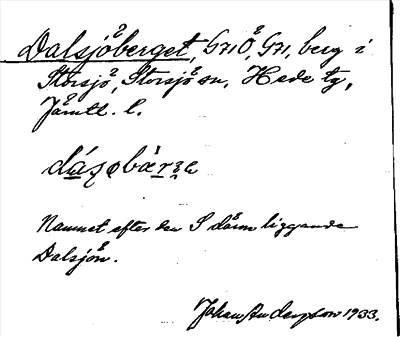 Dalsjöberget, G71Ö, G71, berg i
Storsjö, Storsjö sn, Hede tg,
Jämtl. l.
Namnet efter den S därom liggande
Dalsjön.
Johan Anderson 1933.